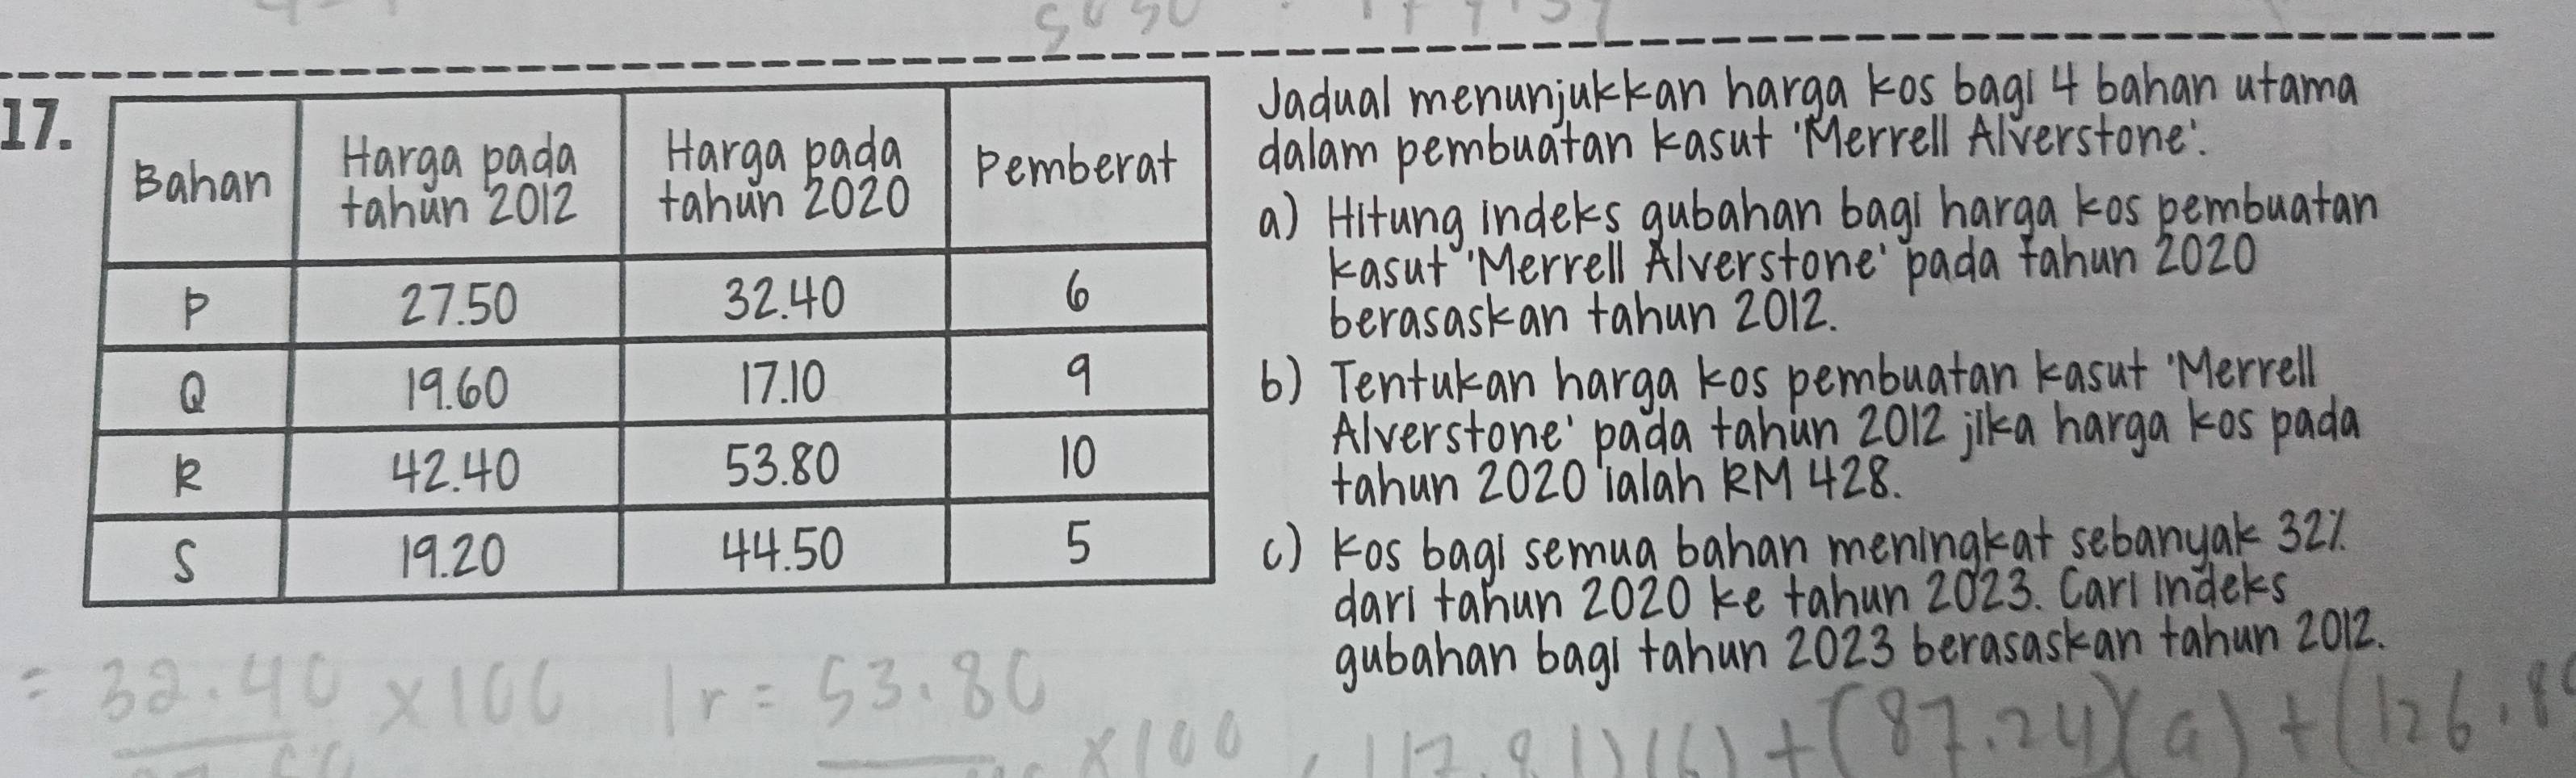 17.
Bahan | Harga pada tahun 2012 | Harga pada tahun 2020 | Pemberat
P | 27.50 | 32.40 | 6
Q | 19.60 | 17.10 | 9
R | 42.40 | 53.80 | 10
S | 19.20 | 44.50 | 5
Jadual menunjukkan harga kos bagi 4 bahan utama
dalam pembuatan kasut 'Merrell Alverstone'.
a) Hitung indeks gubahan bagi harga kos pembuatan
kasut 'Merrell Alverstone' pada tahun 2020
berasaskan tahun 2012.
b) Tentukan harga kos pembuatan kasut 'Merrell
Alverstone' pada tahun 2012 jika harga kos pada
tahun 2020 ialah RM 428.
c) Kos bagi semua bahan meningkat sebanyak 32%
dari tahun 2020 ke tahun 2023. Cari indeks
gubahan bagi tahun 2023 berasaskan tahun 2012.
= 32.40 × 100
Ir = 53.80
× 100
+ (87.24)(9) + (126.8